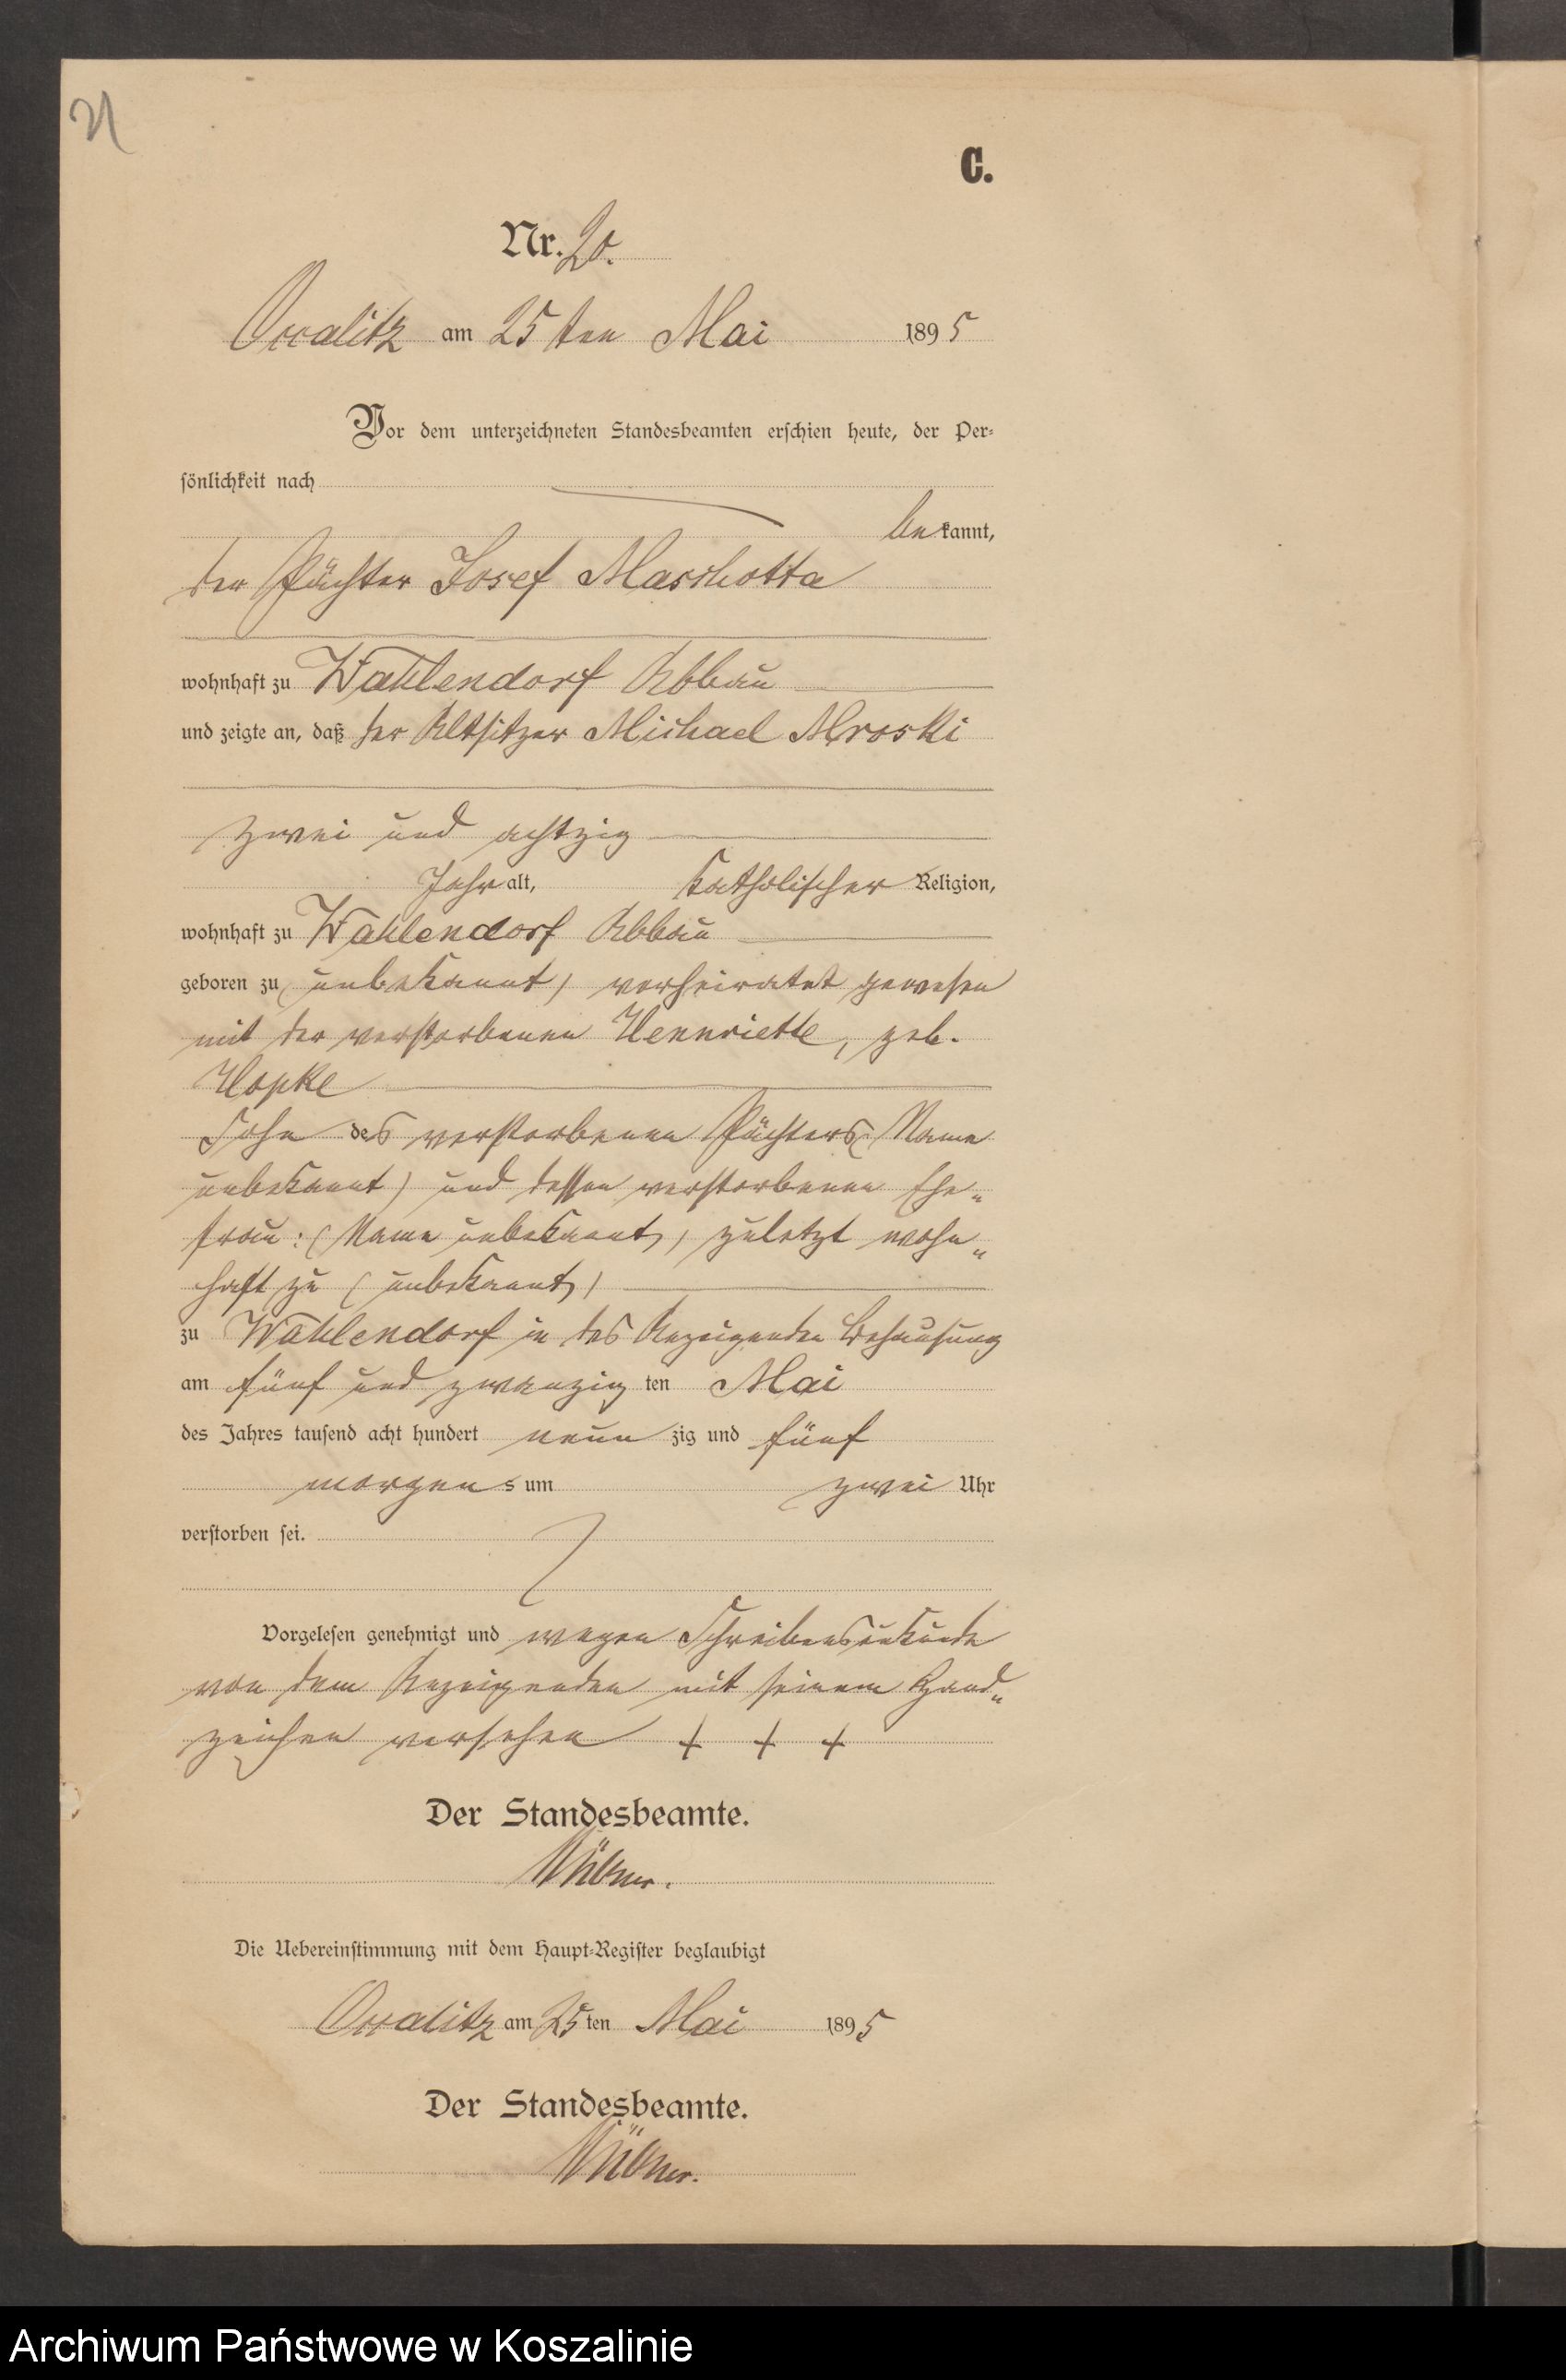 21
C.
Nr. 20.
Oslalitz am 25 ten Mai 1895
Vor dem unterzeichneten Standesbeamten erschien heute, der Per-
sönlichkeit nach
bekannt,
der Pächter Josef Maschotta
wohnhaft zu Wahlendorf Abbau
und zeigte an, daß der Altsitzer Michael Mroski
zwei und achtzig
Jahr alt, katholischer Religion,
wohnhaft zu Wahlendorf Abbau
geboren zu (unbekannt) verheiratet gewesen
mit der verstorbenen Hennriette, geb.
Hopke
Sohn des verstorbenen Pächters (Name
unbekannt) und dessen verstorbenen Ehe„
frau: (Name unbekannt), zuletzt wohn„
haft zu (unbekannt)
zu Wahlendorf in des Anzeigenden Behausung
am fünf und zwanzig ten Mai
des Jahres tausend acht hundert neun zig und fünf
morgens um zwei Uhr
verstorben sei.
Vorgelesen genehmigt und wegen Schreibensunkunde
von dem Anzeigenden mit seinem Hand„
zeichen versehen + + +
Der Standesbeamte.
Die Uebereinstimmung mit dem Haupt-Register beglaubigt
am 25 ten Mai 1895
Der Standesbeamte.
Archiwum Państwowe w Koszalinie